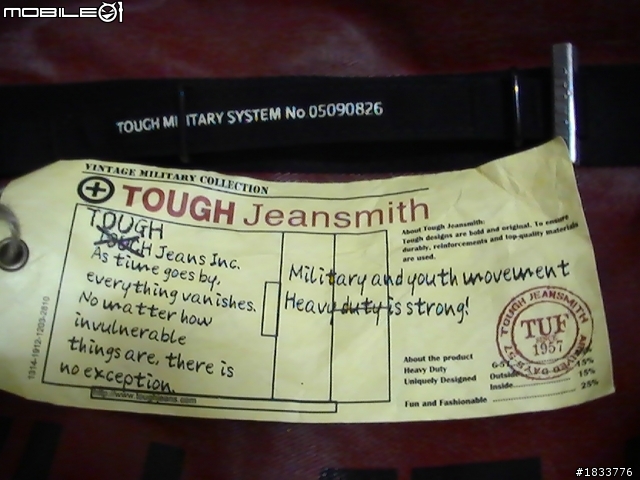 MOBILE01
TOUGH MILITARY SYSTEM No 05090826
VINTAGE MILITARY COLLECTION
TOUGH Jeansmith
TOUGH
TOUGH Jeans Inc.
As time goes by,
everything vanishes.
No matter how
invulnerable
things are, there is
no exception.
http://www.toughjeans.com
Military and youth movement
Heavy duty is strong!
About Tough Jeansmith:
Tough designs are bold and original. To ensure
durably, reinforcements and top-quality materials
are used.
TOUGH JEANSMITH
TUF
SINCE
1957
About the product
Heavy Duty
Uniquely Designed
Outside
15%
Inside
15%
Fun and Fashionable
25%
1314-1912-1203-2810
#1833776